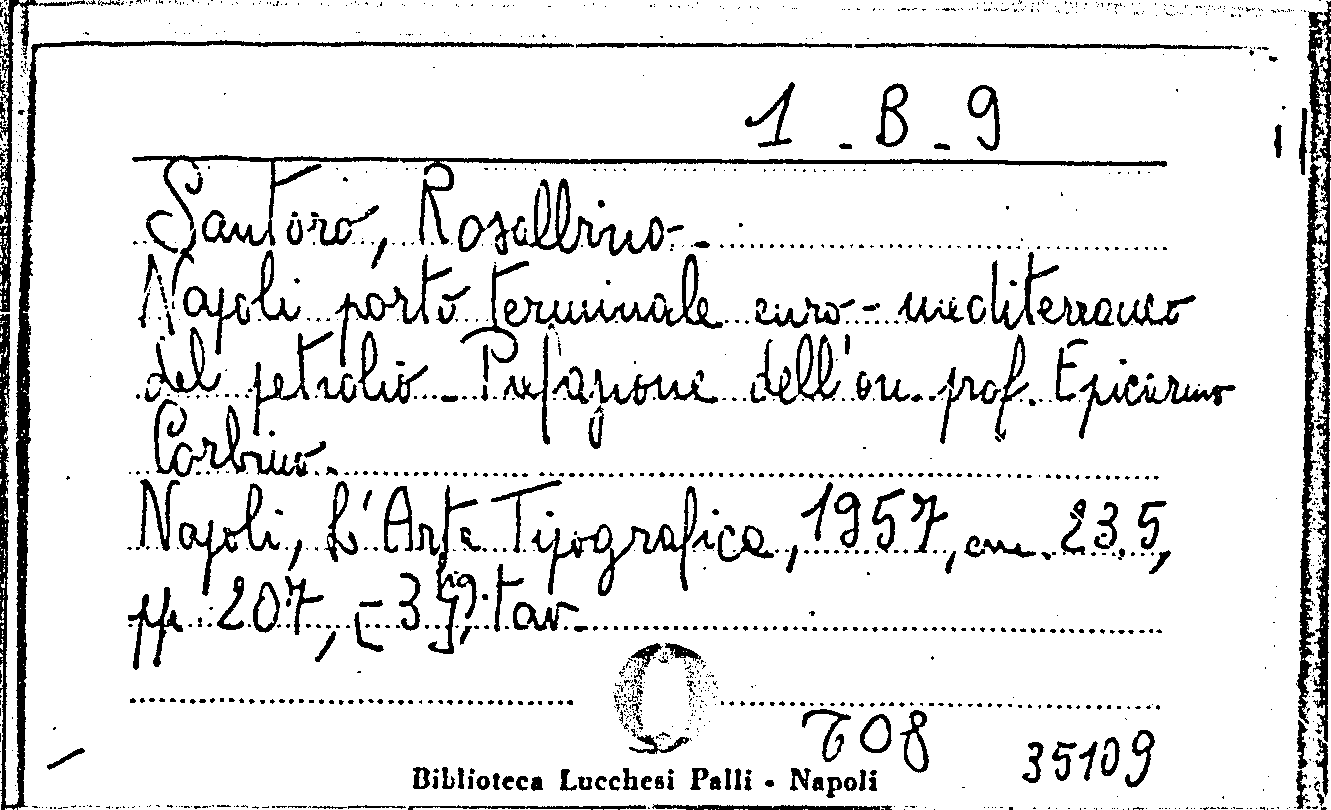 1 - B - 9
Santoro, Rosalbino -
Napoli porto terminale euro-mediterraneo
del petrolio - Prefazione dell'on. prof. Epicarmo
Corbino.
Napoli, L'Arte Tipografica, 1957, cm. 23.5,
pp. 207, [3], fig. tav.
708 35109
Biblioteca Lucchesi Palli - Napoli